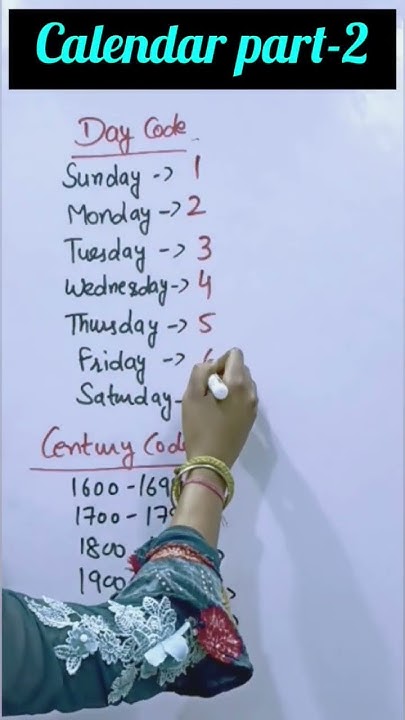 Calendar part-2
Day Code
Sunday -> 1
Monday -> 2
Tuesday -> 3
Wednesday -> 4
Thursday -> 5
Friday ->
Saturday -
Century Cod
1600 - 169
1700 - 17
1800
1900